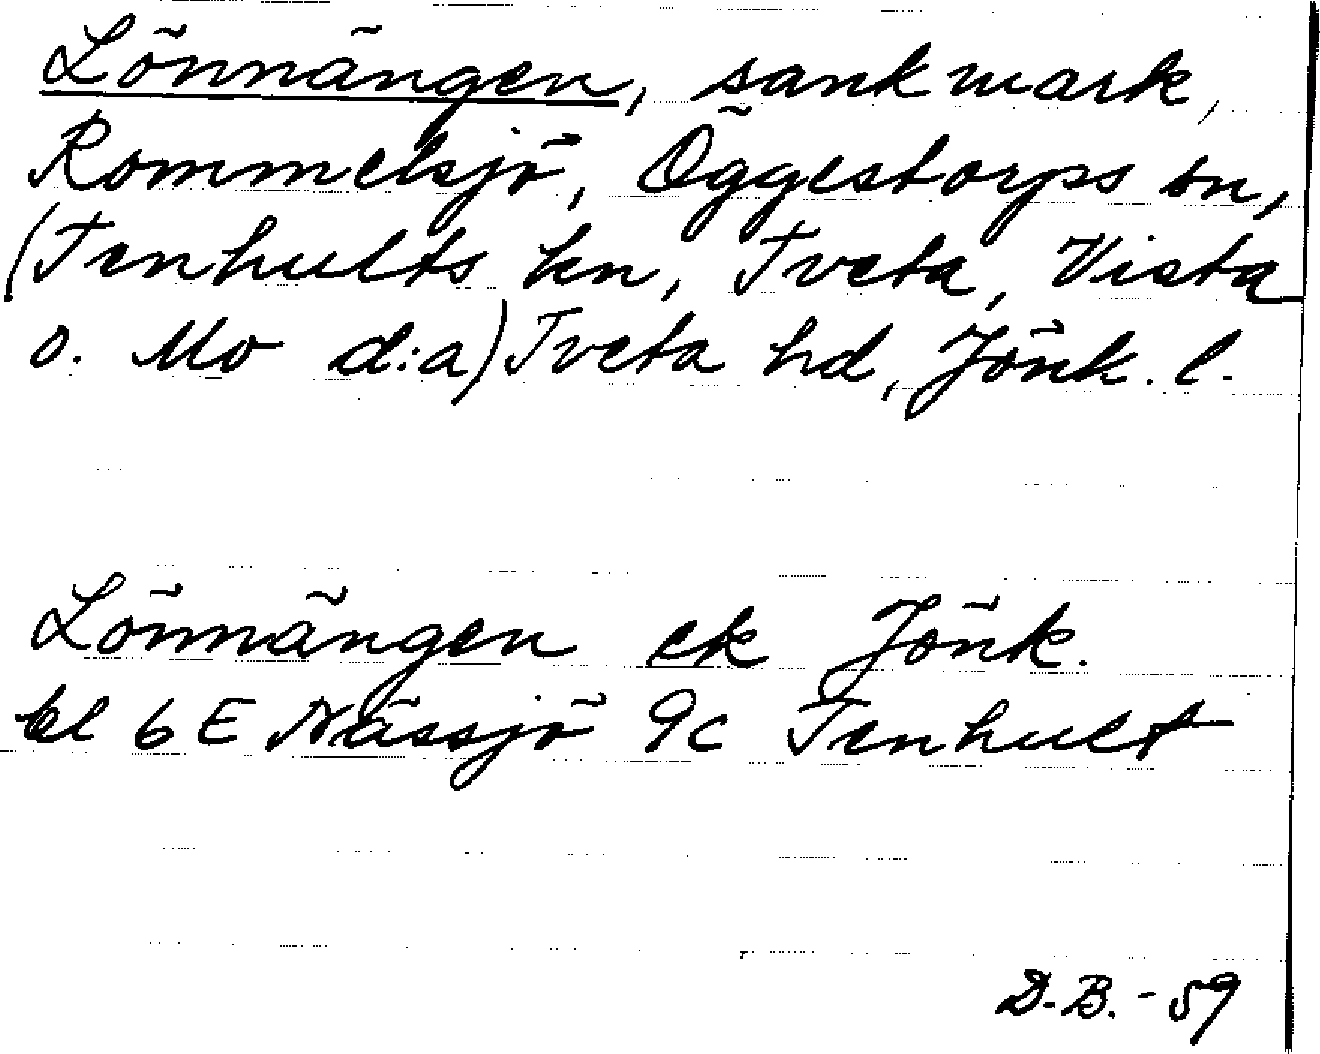 Lönnängen, sankmark,
Rommelsjö, Öggestorps sn,
(Tenhults kn, Tveta, Vista
o. Mo d:a) Tveta hd, Jönk. l.
Lönnängen ek Jönk.
bl 6 E Nässjö 9c Tenhult
D.B. - 59